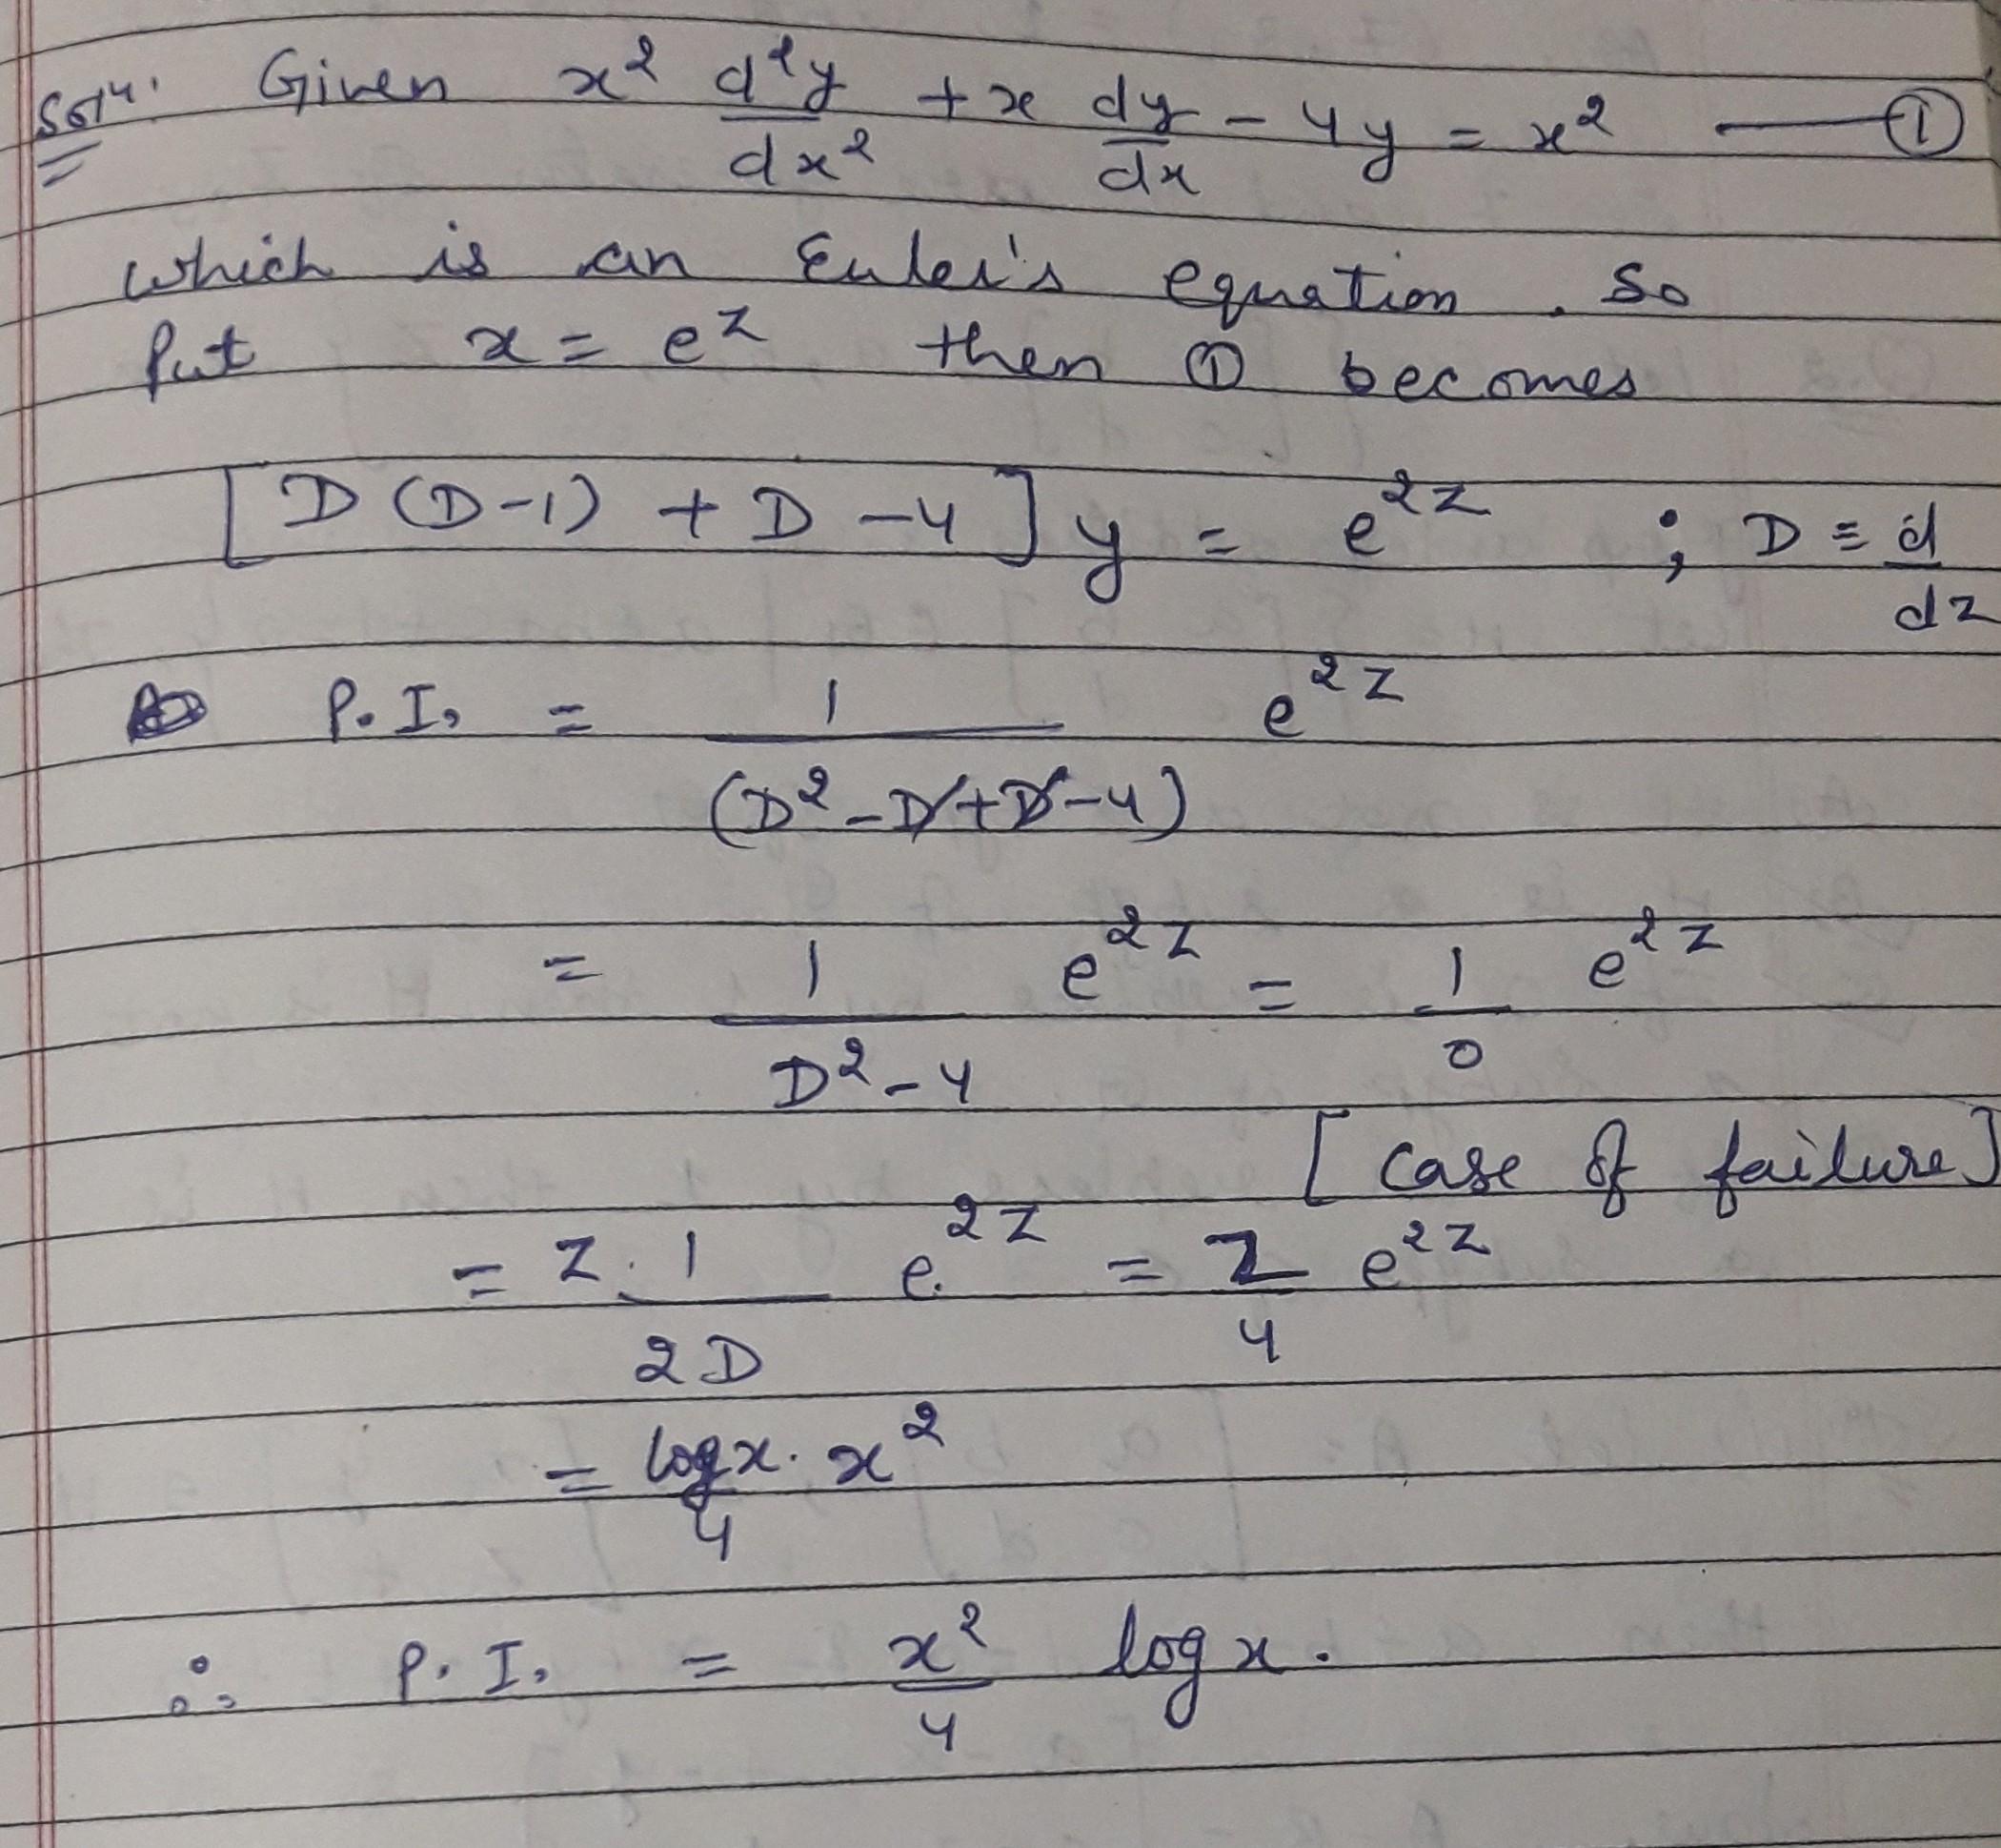 Sol^n. Given x² d²y/dx² + x dy/dx - 4y = x² —— ①
which is an Euler's equation. So
Put x = e^z then ① becomes
[D(D-1) + D - 4] y = e^{2z} ; D ≡ d/dz
P.I. = 1/(D² - D + D - 4) e^{2z}
= 1/(D² - 4) e^{2z} = 1/0 e^{2z}
[Case of failure]
= z. 1/2D e^{2z} = z/4 e^{2z}
= logx/4 . x²
∴ P.I. = x²/4 log x.